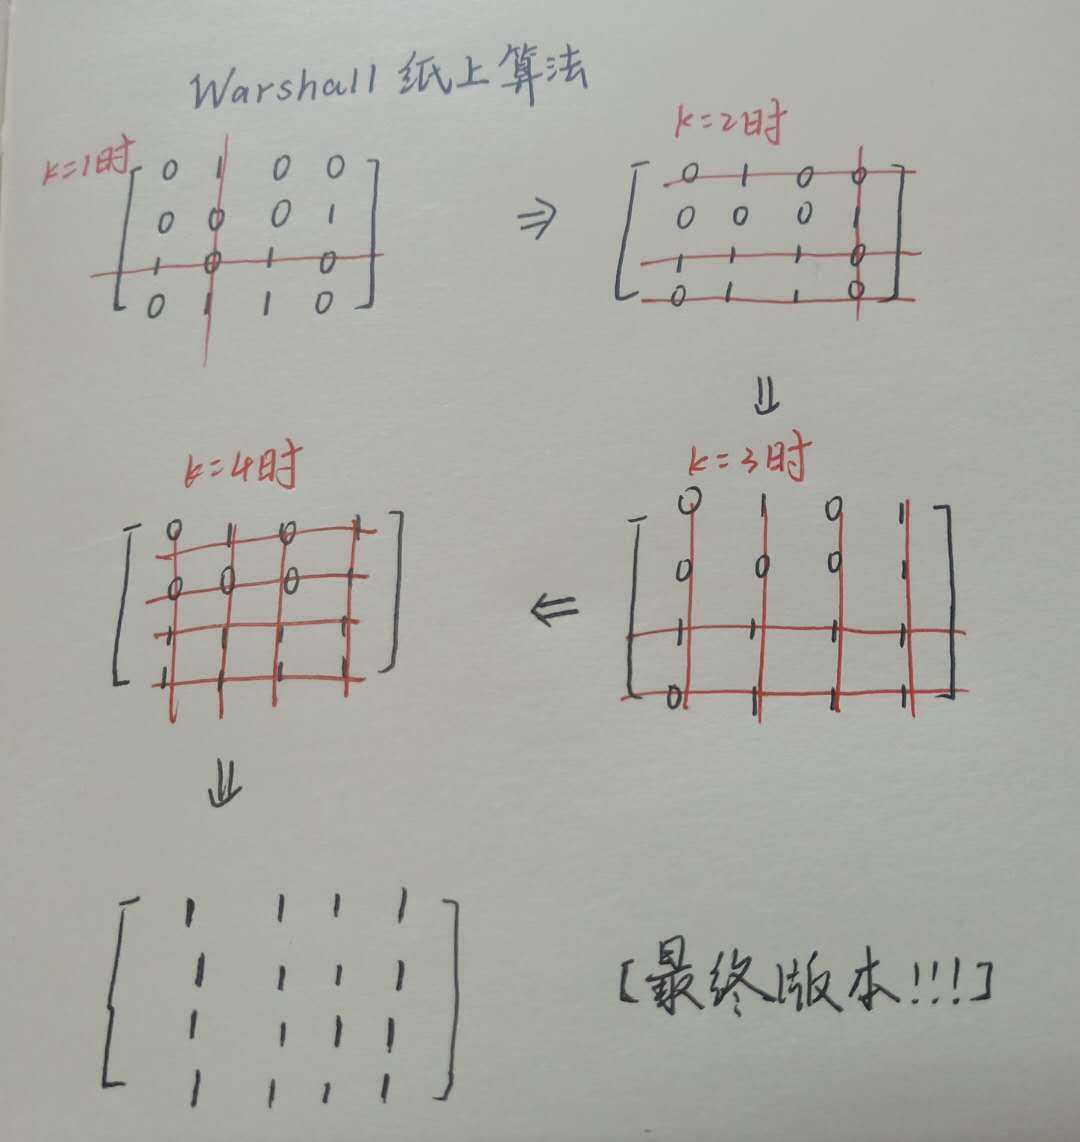 Warshall 纸上算法
k=1时
0 1 0 0
0 0 0 1
1 0 1 0
0 1 1 0
⇒
k=2时
0 1 0 0
0 0 0 1
1 1 1 0
0 1 1 0
⇓
k=3时
0 1 0 1
0 0 0 1
1 1 1 1
0 1 1 1
⇐
k=4时
0 1 0 1
0 0 0 1
1 1 1 1
1 1 1 1
⇓
1 1 1 1
1 1 1 1
1 1 1 1
1 1 1 1
[最终版本!!!]